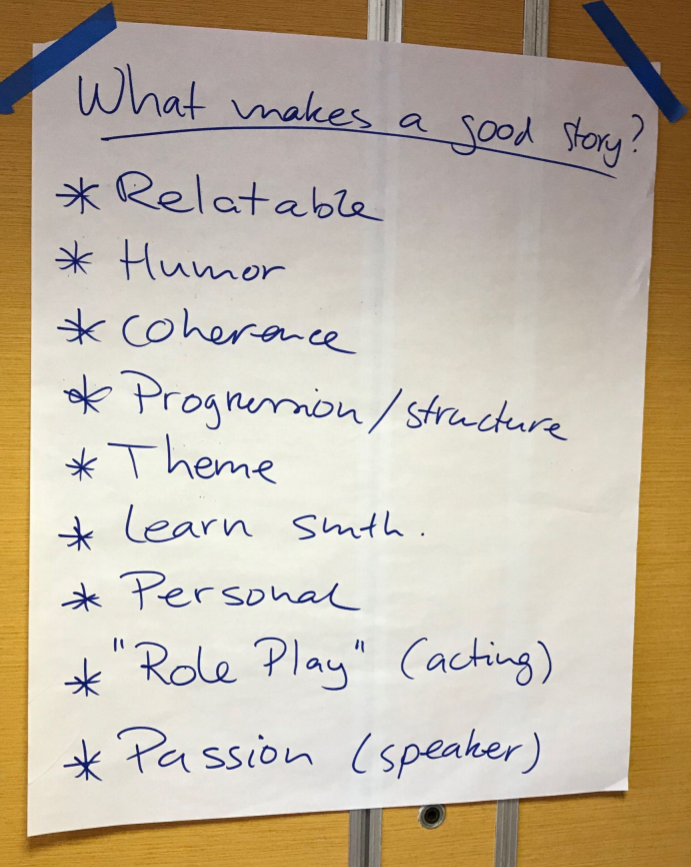 What makes a good story?
* Relatable
* Humor
* Coherence
* Progression/structure
* Theme
* Learn smth.
* Personal
* "Role Play" (acting)
* Passion (speaker)